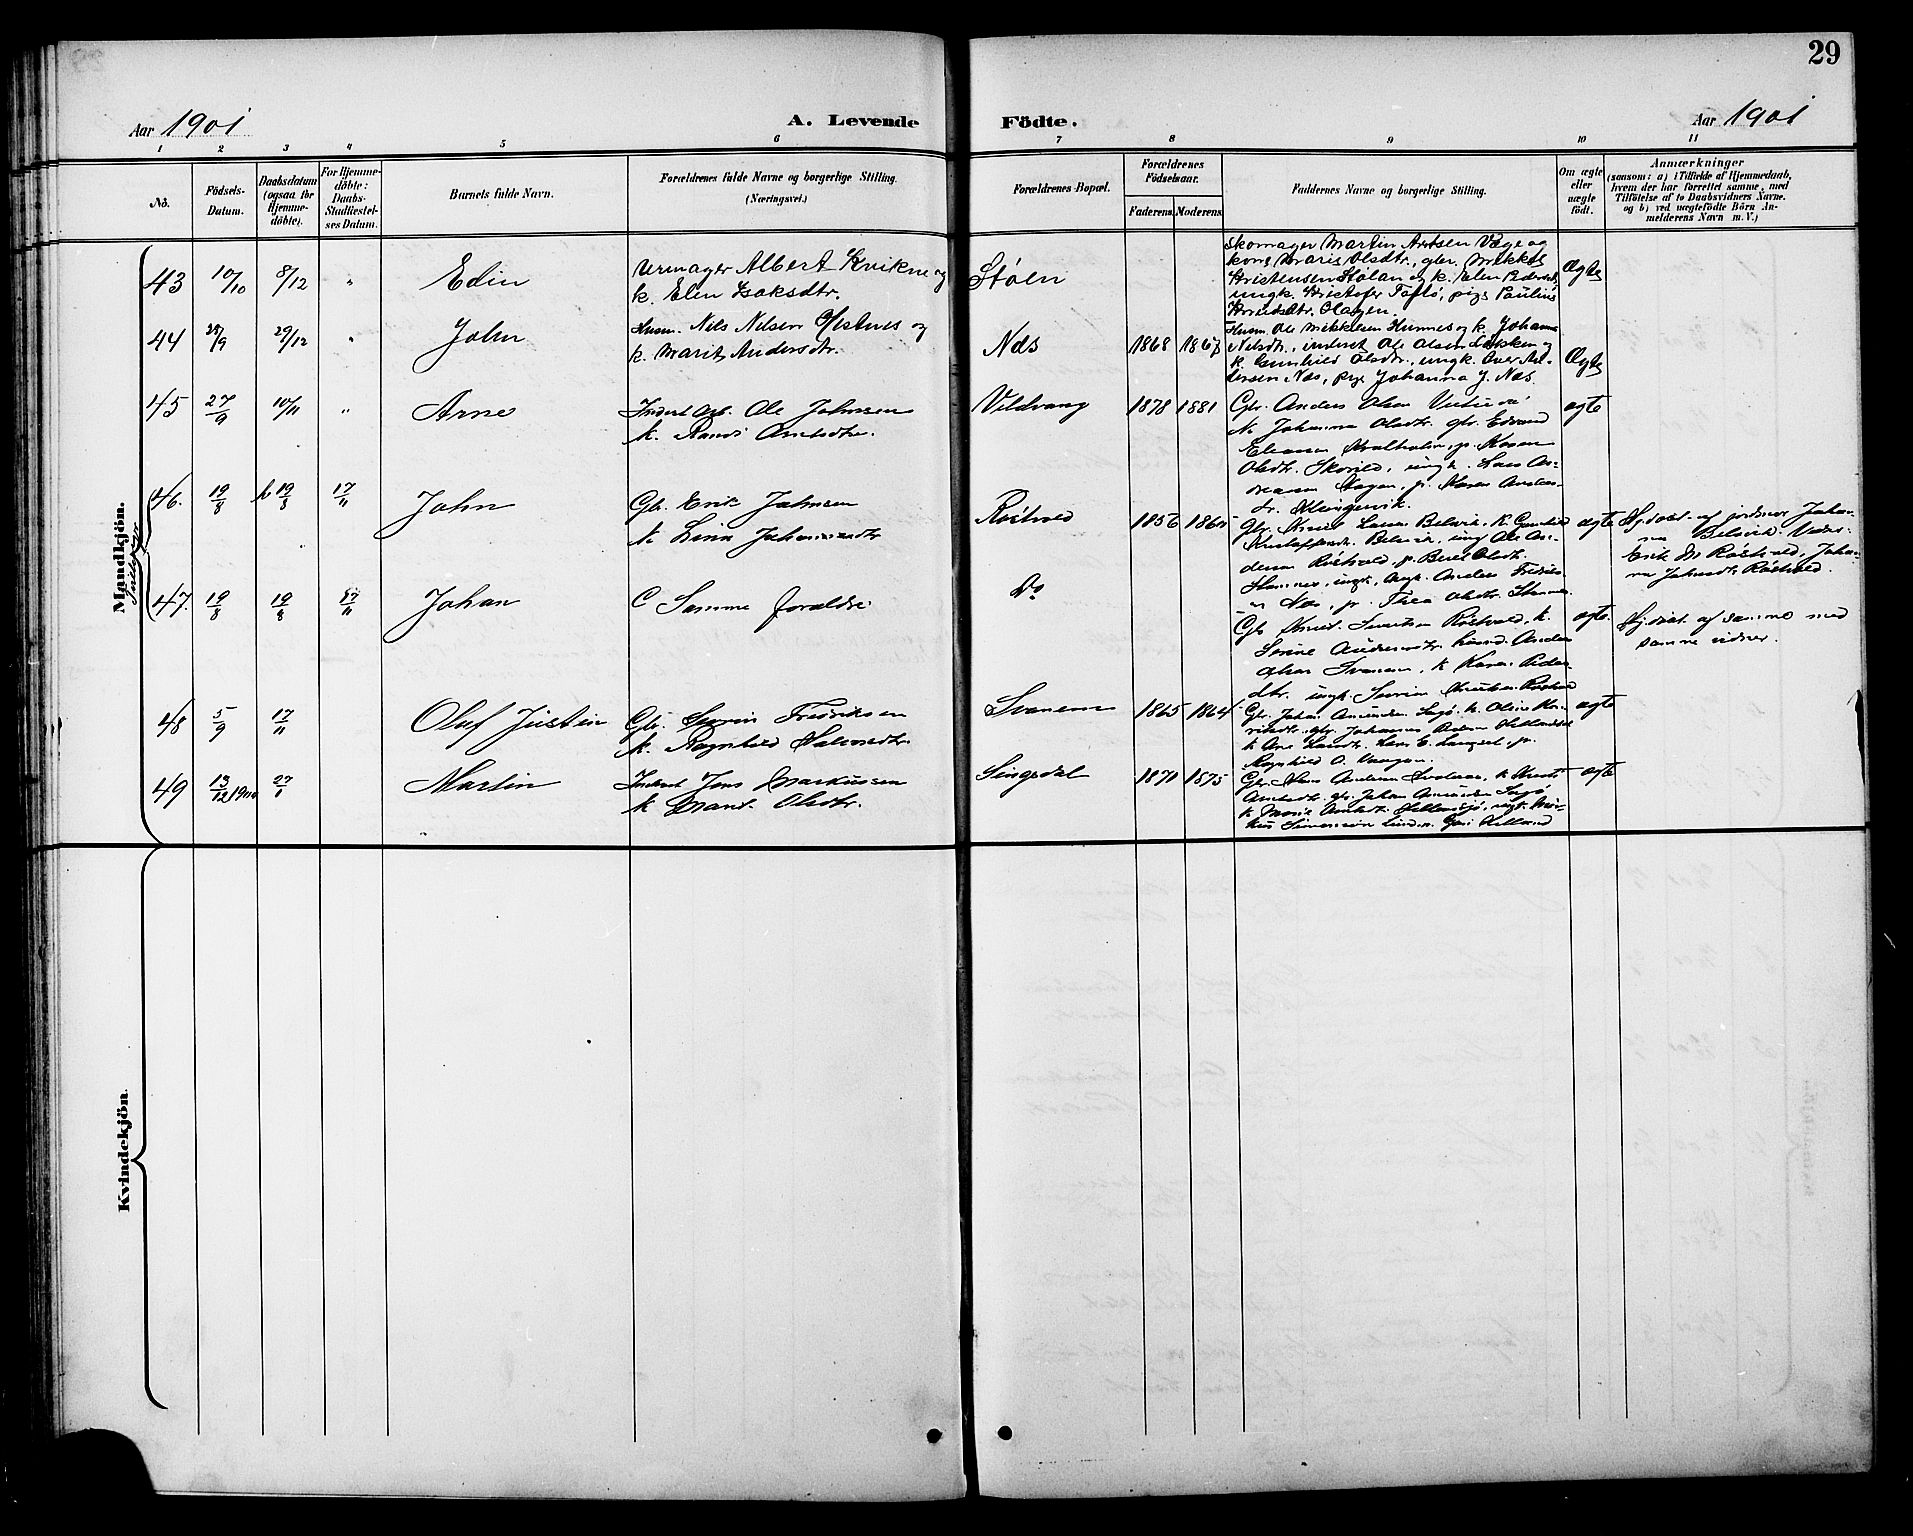 29
Aar 1901
A. Levende
Födte.
Aar 1901
1 2 3 4 5 6 7 8 9 10 11
No.
Födsels-
Datum.
Daabsdatum
(ogsaa for
Hjemme-
döbte).
For Hjemme-
döbte:
Daabs-
Stadfæstel-
ses Datum.
Barnets fulde Navn.
Forældrenes fulde Navne og borgerlige Stilling.
(Næringsvei.)
Forældrenes Bopæl.
Forældrenes
Födselsaar.
Faderens. Moderens.
Faddernes Navne og borgerlige Stilling.
Om ægte
eller
uægte
födt.
Anmærkninger
(saasom: a) i Tilfælde af Hjemmedaab,
hvem der har forrettet samme, med
Tilföielse af to Daabsvidners Navne.
og b) ved uægtefödte Börn An-
melderens Navn m. V.)
Mandkjön.
43 10/10 8/12 " Edin
Urmager Albert Kvikne og
k. Elen Isaksdtr.
Stølen
Skomager Martin Arntsen Vage og
kone Marit Olsdtr., gbr. Mikkel
Kristensen Stølan og k. Elen Pedersdt,
ungk. Kristofer Taftø, pige Pauline
Knudsdtr. Hagen.
Ægte
44 29/12 " John
Husm. Nils Nilsen Ofstnes og
k. Marit Andersdtr.
Næs 1868 1867
Husm. Ole Mikkelsen Humnes og k. Johanna
Nilsdtr., inderst Ole Olsen
k. Gunhild Olsdtr., ungk. Iver An-
dersen Næs, pige Johanna J. Næs.
Ægte
45 27/9 10/11 " Arne
Inderst Arb. Ole Johnsen
k. Randi Arntsdtr.
Vildvang 1878 1881
Gbr. Anders Olsen
k. Johanna Olsdtr. gbr. Edvard
Eliassen Kvalholm, p. Karen
Olsdtr. Skorild, ungk. Lars An-
dreasen Hagen, p. Karen Anders-
dr. Klingenvik.
ægte
Tvillinger
46. 19/8 19/8 17/11 John
Gbr. Erik Johnsen
k. Line Johannesdtr
Røstvold 1856 1865
Gbr. Knut Larsen Belsvik, k. Gunhild
Kristoffersdtr. Belsvik, ung Ole An-
dersen Røstvold, p. Beret Olsdtr.
Stamnes, ungk. Anders Fredrik-
n Næs, p. Thea Olsdtr. Stamnes
ægte
Hj.døbt af jordmor Johan-
na Belsvik. Vidne:
Erik M Røstvold, Johan-
na Johnsdtr Røstvold.
47. 19/8 19/8 17/11 Johan
Samme forældre
Do
Gbr Knut Sivertsen Røstvold, k.
Serine Andersdtr. husmd. Anders
Olsen Svanem, k Karen Peders-
dtr. ungk. Severin Knutsen Røstvold
ægte.
Hj.døbt af samme med
samme vidner.
48 5/9 17/11 Oluf Justin
Gbr. Severin Fredriksen
k. Ragnhild Halvorsdtr.
Svanem 1865 1864
Gbr. Johan Amundsen Sagø k. Oline Hen-
riksdtr. gbr. Johannes Pedersen
k Ane Larsdtr. Lars E. Langset, p.
Ragnhild O. Vaagan.
ægte
49 13/12 1900 27/1 Martin
Inderst Jens Markussen
k Marit Olsdtr.
Singsdal 1870 1875
Gbr. Hans Andersen
Arntsdtr. gbr. Johan Amundsen Sagø
k Marit Arntsdtr. Hellandsjø, ungk. Mar-
kus Simonsen Lund p. Guri Helland
ægte
Kvindekjön.